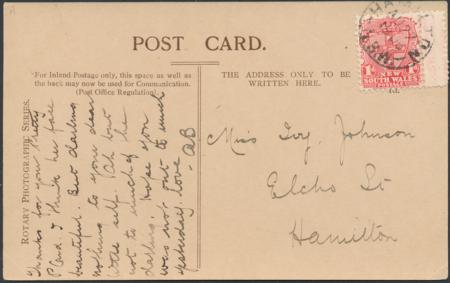 POST CARD.
For Inland Postage only, this space as well as
the back may now be used for Communication.
(Post Office Regulation).
THE ADDRESS ONLY TO BE
WRITTEN HERE.
ROTARY PHOTOGRAPHIC SERIES.
HAMILTON
N.S.W
1D
NEW
SOUTH WALES
POSTAGE
Thanks for your pretty
P Card. I think her face
beautiful. But darling
nothing to your dear
little self. Oh but
not to much of the
darling. Hope you
was not out to much
yesterday. love
AB
Miss Ivy Johnson
Elcho St
Hamilton